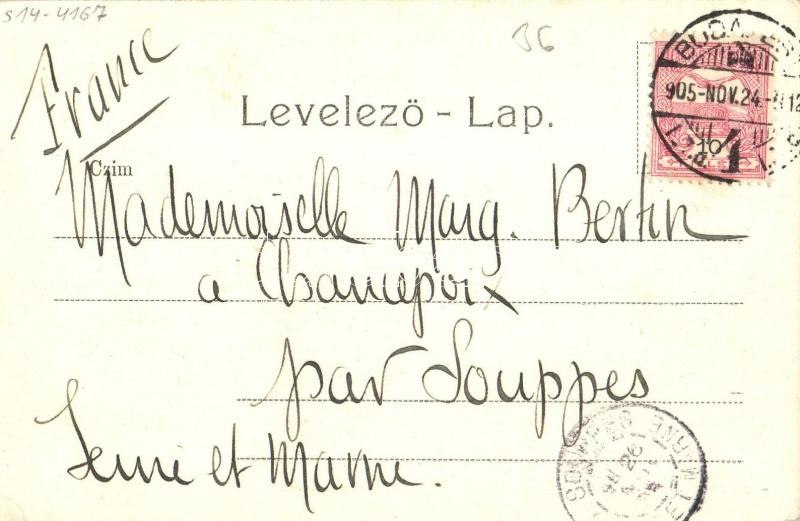 S14-4167
36
France
BUDAPEST
905-NOV.24
10
4
Levelező - Lap.
Czim
Mademoiselle Marg. Bertin
a Chancepoix
par Souppes
Seine et Marne.
SOUPPES
ET MARNE
26